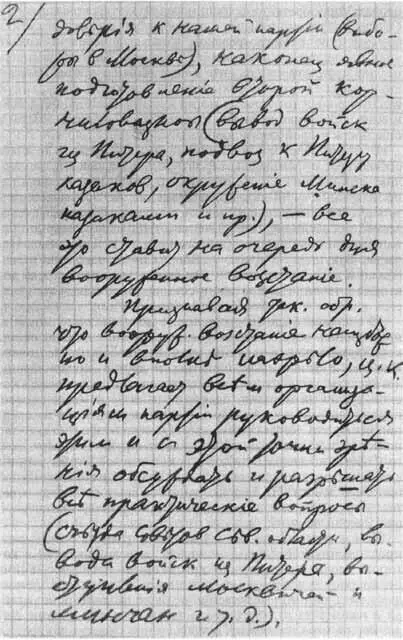 2/
довѣрія к нашей партіи (выбо-
ры в Москвѣ), наконец явное
подготовленіе второй кор-
ниловщины (вывод войск
из Питера, подвоз к Питеру
казаков, окруженіе Минска
казаками и пр.), — все
это ставит на очередь дня
вооруженное возстаніе.
Признавая так. обр.
что вооруж. возстаніе неизбѣж
но и вполнѣ назрѣло, Ц. К.
предлагает всѣм организа-
ціям партіи руководиться
этим и с этой точки зрѣ-
нія обсуждать и разрѣшать
всѣ практическіе вопросы
(съѣзда совѣтов Сѣв. области, вы-
вода войск из Питера, вы-
ступленія Москвичей и
минчан и т. д.).